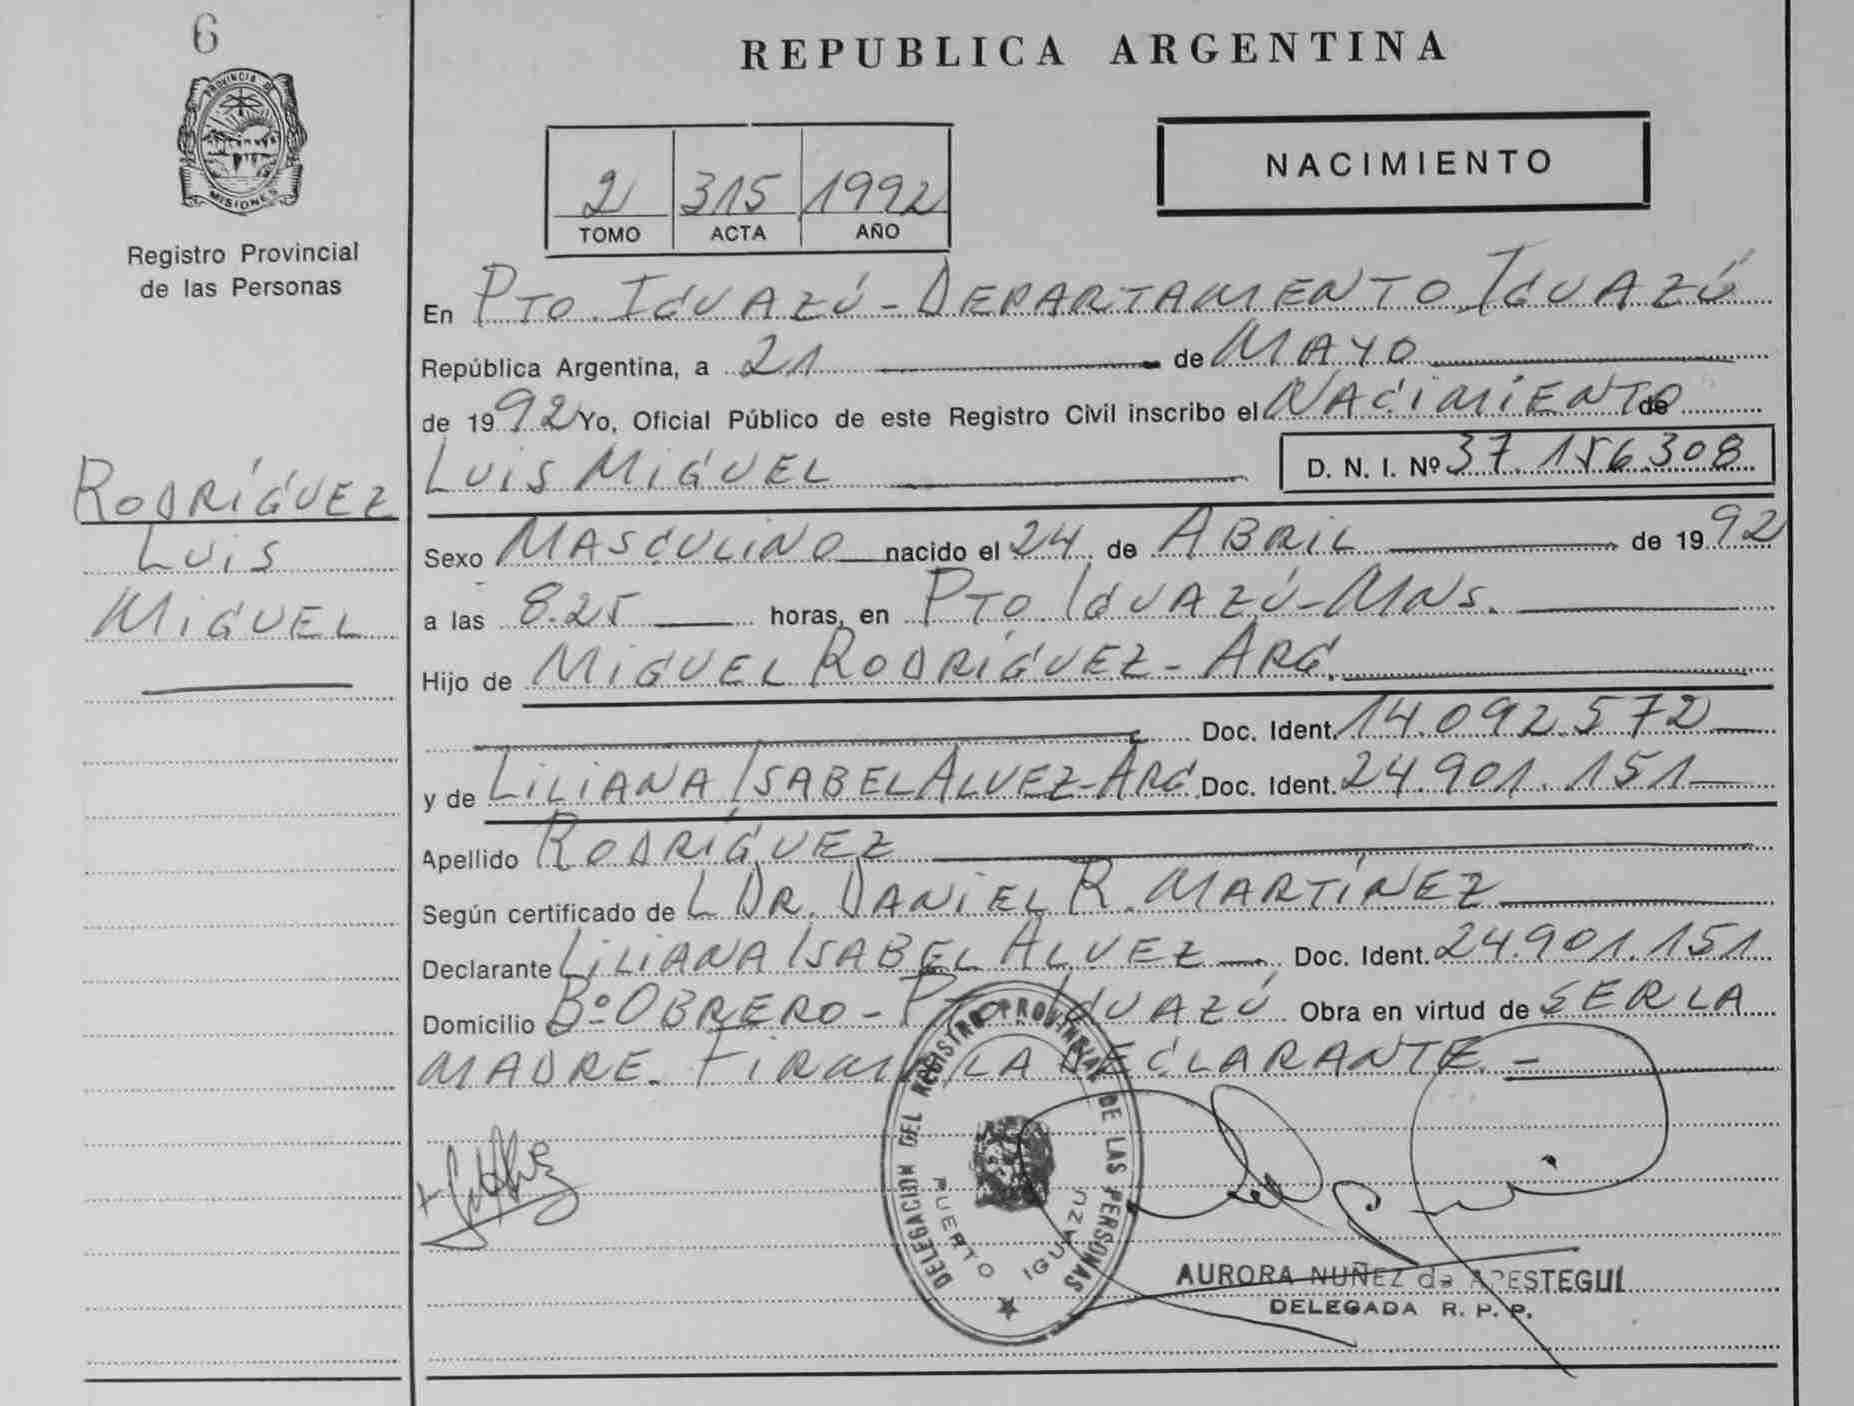 6
PROVINCIA DE MISIONES
Registro Provincial
de las Personas
RODRÍGUEZ
LUIS
MIGUEL
REPUBLICA ARGENTINA
2 315 1992
TOMO ACTA AÑO
NACIMIENTO
En PTO. IGUAZÚ - DEPARTAMENTO IGUAZÚ
República Argentina, a 21 de MAYO
de 1992 Yo, Oficial Público de este Registro Civil inscribo el NACIMIENTO de
LUIS MIGUEL D. N. I. Nº 37.156.308
Sexo MASCULINO nacido el 24 de ABRIL de 1992
a las 8.25 horas, en PTO. IGUAZÚ - MNS.
Hijo de MIGUEL RODRÍGUEZ - ARG.
Doc. Ident. 14.092.572
y de LILIANA ISABEL ALVEZ - ARG. Doc. Ident. 24.901.151
Apellido RODRÍGUEZ
Según certificado de L DR. DANIEL R. MARTÍNEZ
Declarante LILIANA ISABEL ALVEZ Doc. Ident. 24.901.151
Domicilio Bº OBRERO - PTO. IGUAZÚ Obra en virtud de SER LA
MADRE. FIRMA LA DECLARANTE. -
DELEGACION DEL REGISTRO PROVINCIAL DE LAS PERSONAS
PUERTO IGUAZU
AURORA NUÑEZ de APESTEGUI
DELEGADA R. P. P.